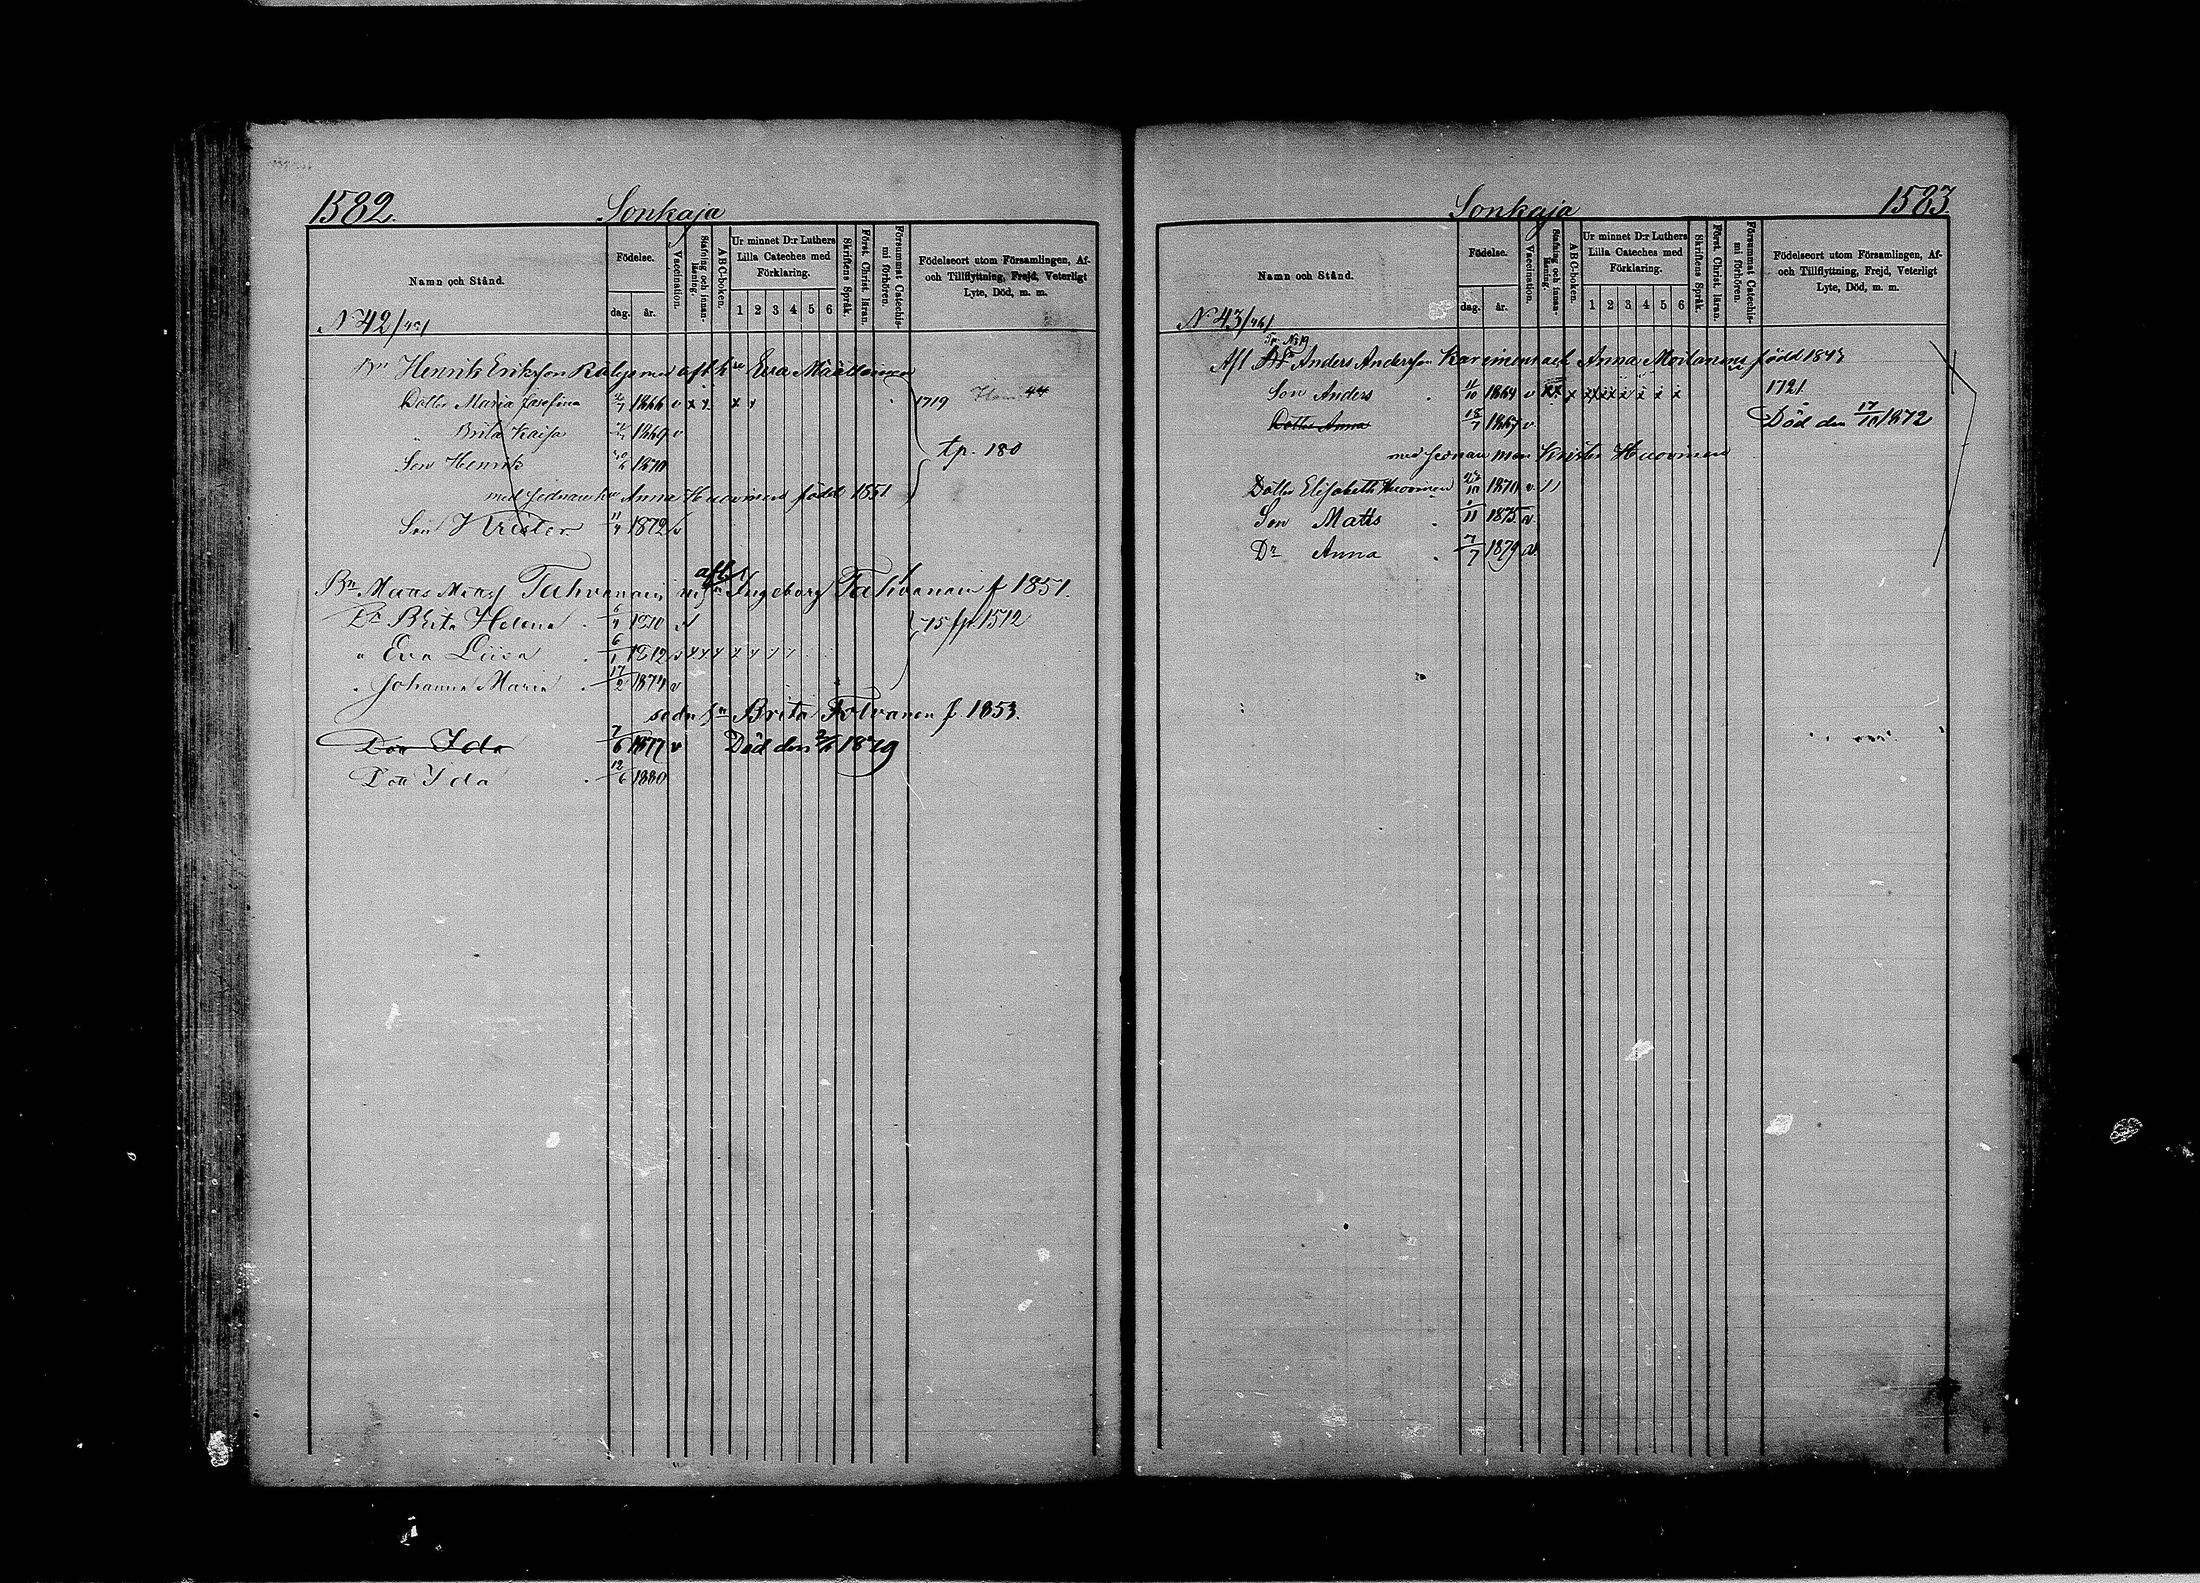 1582. Sonkaja
Namn och Stånd.
Födelse.
dag. år.
Vaccination.
Stafning och innanläsning.
ABC-boken.
Ur minnet D:r Luthers Lilla Cateches med Förklaring.
1 2 3 4 5 6
Skriftens Språk.
Först. Christ. läran.
Försummat Catechismi förhören.
Födelseort utom Församlingen, Af- och Tillflyttning, Frejd, Veterligt Lyte, Död, m. m.
N 42/45/
Bn Henrik Eriksson afl. h. Eva Määttänen
Dotter Maria Josefina 1866 v x x x x 1719 44
" Brita Kaisa 1869 v
Son Henrik 1870 tp. 180
med sednare hu Anna Huovinen född 1851
Son Krister 11/4 1872 v
Bn Matts Matss Tahvanain afl. Ingeborg Tahvanain f 1851.
Dr Brita Helena 1870 v 75 fp. 1572
" Eva Liisa 6/1 1872 v
" Johanna Maria 17/2 1874 v
sedn hu Brita Tolvanen f 1853.
Dotr Ida 7/6 1877 v Död den 1879
Dotr Ida 12/6 1880
Sonkaja 1583.
Namn och Stånd.
Födelse.
dag. år.
Vaccination.
Stafning och innanläsning.
ABC-boken.
Ur minnet D:r Luthers Lilla Cateches med Förklaring.
1 2 3 4 5 6
Skriftens Språk.
Först. Christ. läran.
Försummat Catechismi förhören.
Födelseort utom Församlingen, Af- och Tillflyttning, Frejd, Veterligt Lyte, Död, m. m.
N 43/46/
Afl Anders Andersson Karvinen Anna Moilanen född 1843
Son Anders 11/10 1864 v 1721
Dotter Anna 18/7 1867 v Död den 17/10 1872
med sednare man Krister Huovinen
Dotter Elisabeth Huovinen 1870 v
Son Matts 1/11 1875 v
Dr Anna 7/7 1879 v